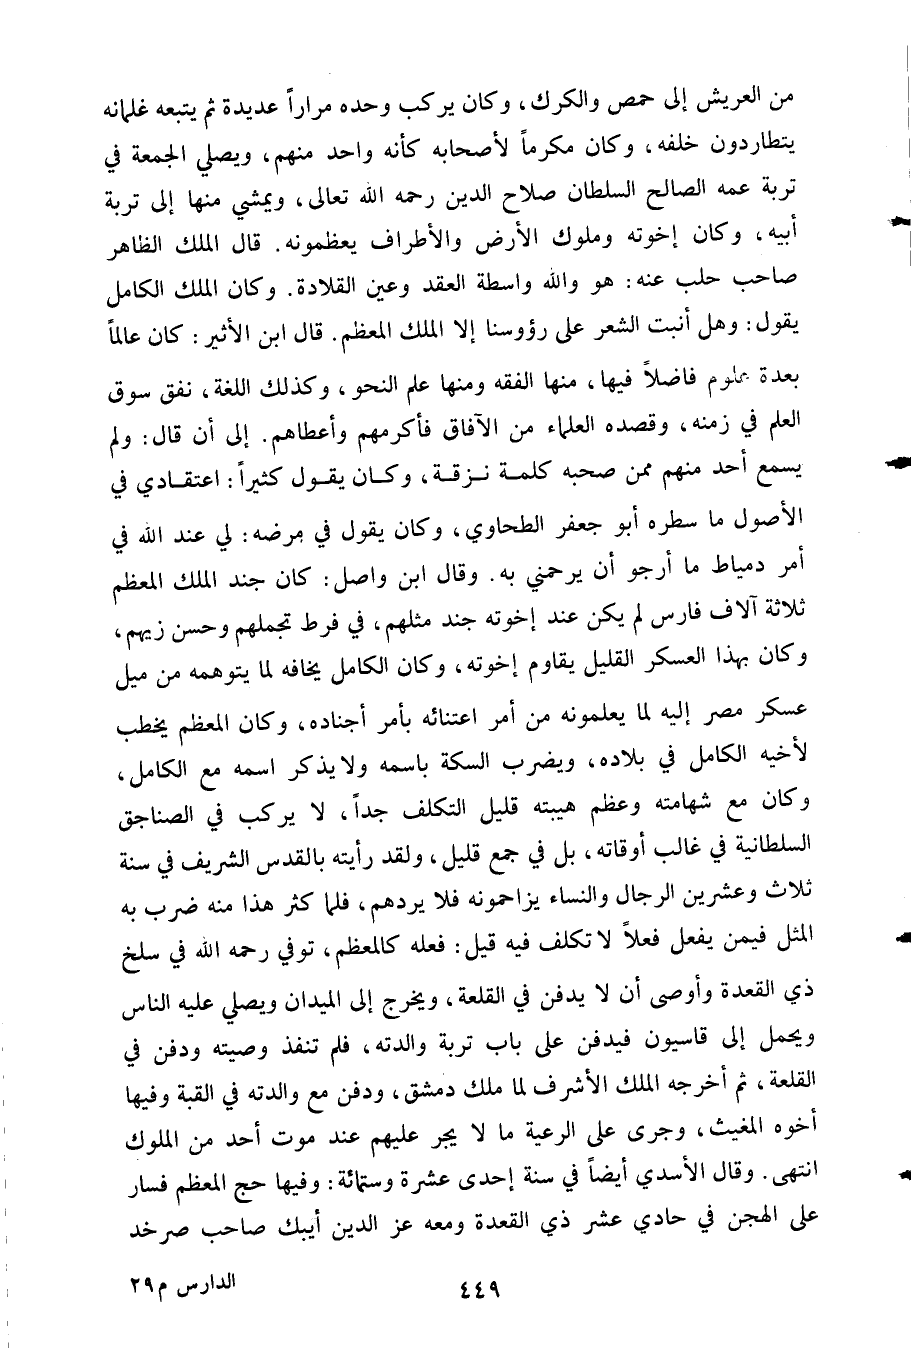 من العريش إلى حمص والكرك، وكان يركب وحده مراراً عديدة ثم يتبعه غلمانه
يتطاردون خلفه، وكان مكرماً لأصحابه كأنه واحد منهم، ويصلي الجمعة في
تربة عمه الصالح السلطان صلاح الدين رحمه الله تعالى، ويمشي منها إلى تربة
أبيه، وكان إخوته وملوك الأرض والأطراف يعظمونه. قال الملك الظاهر
صاحب حلب عنه: هو والله واسطة العقد وعين القلادة. وكان الملك الكامل
يقول: وهل أنبت الشعر على رؤوسنا إلا الملك المعظم. قال ابن الأثير: كان عالماً
بعدة علوم فاضلاً فيها، منها الفقه ومنها علم النحو، وكذلك اللغة، نفق سوق
العلم في زمنه، وقصده العلماء من الآفاق فأكرمهم وأعطاهم. إلى أن قال: ولم
يسمع أحد منهم ممن صحبه كلمة نزقة، وكان يقول كثيراً: اعتقادي في
الأصول ما سطره أبو جعفر الطحاوي، وكان يقول في مرضه: لي عند الله في
أمر دمياط ما أرجو أن يرحمني به. وقال ابن واصل: كان جند الملك المعظم
ثلاثة آلاف فارس لم يكن عند إخوته جند مثلهم، في فرط تجملهم وحسن زيهم،
وكان بهذا العسكر القليل يقاوم إخوته، وكان الكامل يخافه لما يتوهمه من ميل
عسكر مصر إليه لما يعلمونه من أمر اعتنائه بأمر أجناده، وكان المعظم يخطب
لأخيه الكامل في بلاده، ويضرب السكة باسمه ولا يذكر اسمه مع الكامل،
وكان مع شهامته وعظم هيبته قليل التكلف جداً، لا يركب في الصناجق
السلطانية في غالب أوقاته، بل في جمع قليل، ولقد رأيته بالقدس الشريف في سنة
ثلاث وعشرين الرجال والنساء يزاحمونه فلا يردهم، فلما كثر هذا منه ضرب به
المثل فيمن يفعل فعلاً لا تكلف فيه قيل: فعله كالمعظم، توفي رحمه الله في سلخ
ذي القعدة وأوصى أن لا يدفن في القلعة، ويخرج إلى الميدان ويصلي عليه الناس
ويحمل إلى قاسيون فيدفن على باب تربة والدته، فلم تنفذ وصيته ودفن في
القلعة، ثم أخرجه الملك الأشرف لما ملك دمشق، ودفن مع والدته في القبة وفيها
أخوه المغيث، وجرى على الرعية ما لا يجر عليهم عند موت أحد من الملوك
انتهى. وقال الأسدي أيضاً في سنة إحدى عشرة وستمائة: وفيها حج المعظم فسار
على الهجن في حادي عشر ذي القعدة ومعه عز الدين أيبك صاحب صرخد
٤٤٩
الدارس م٢٩